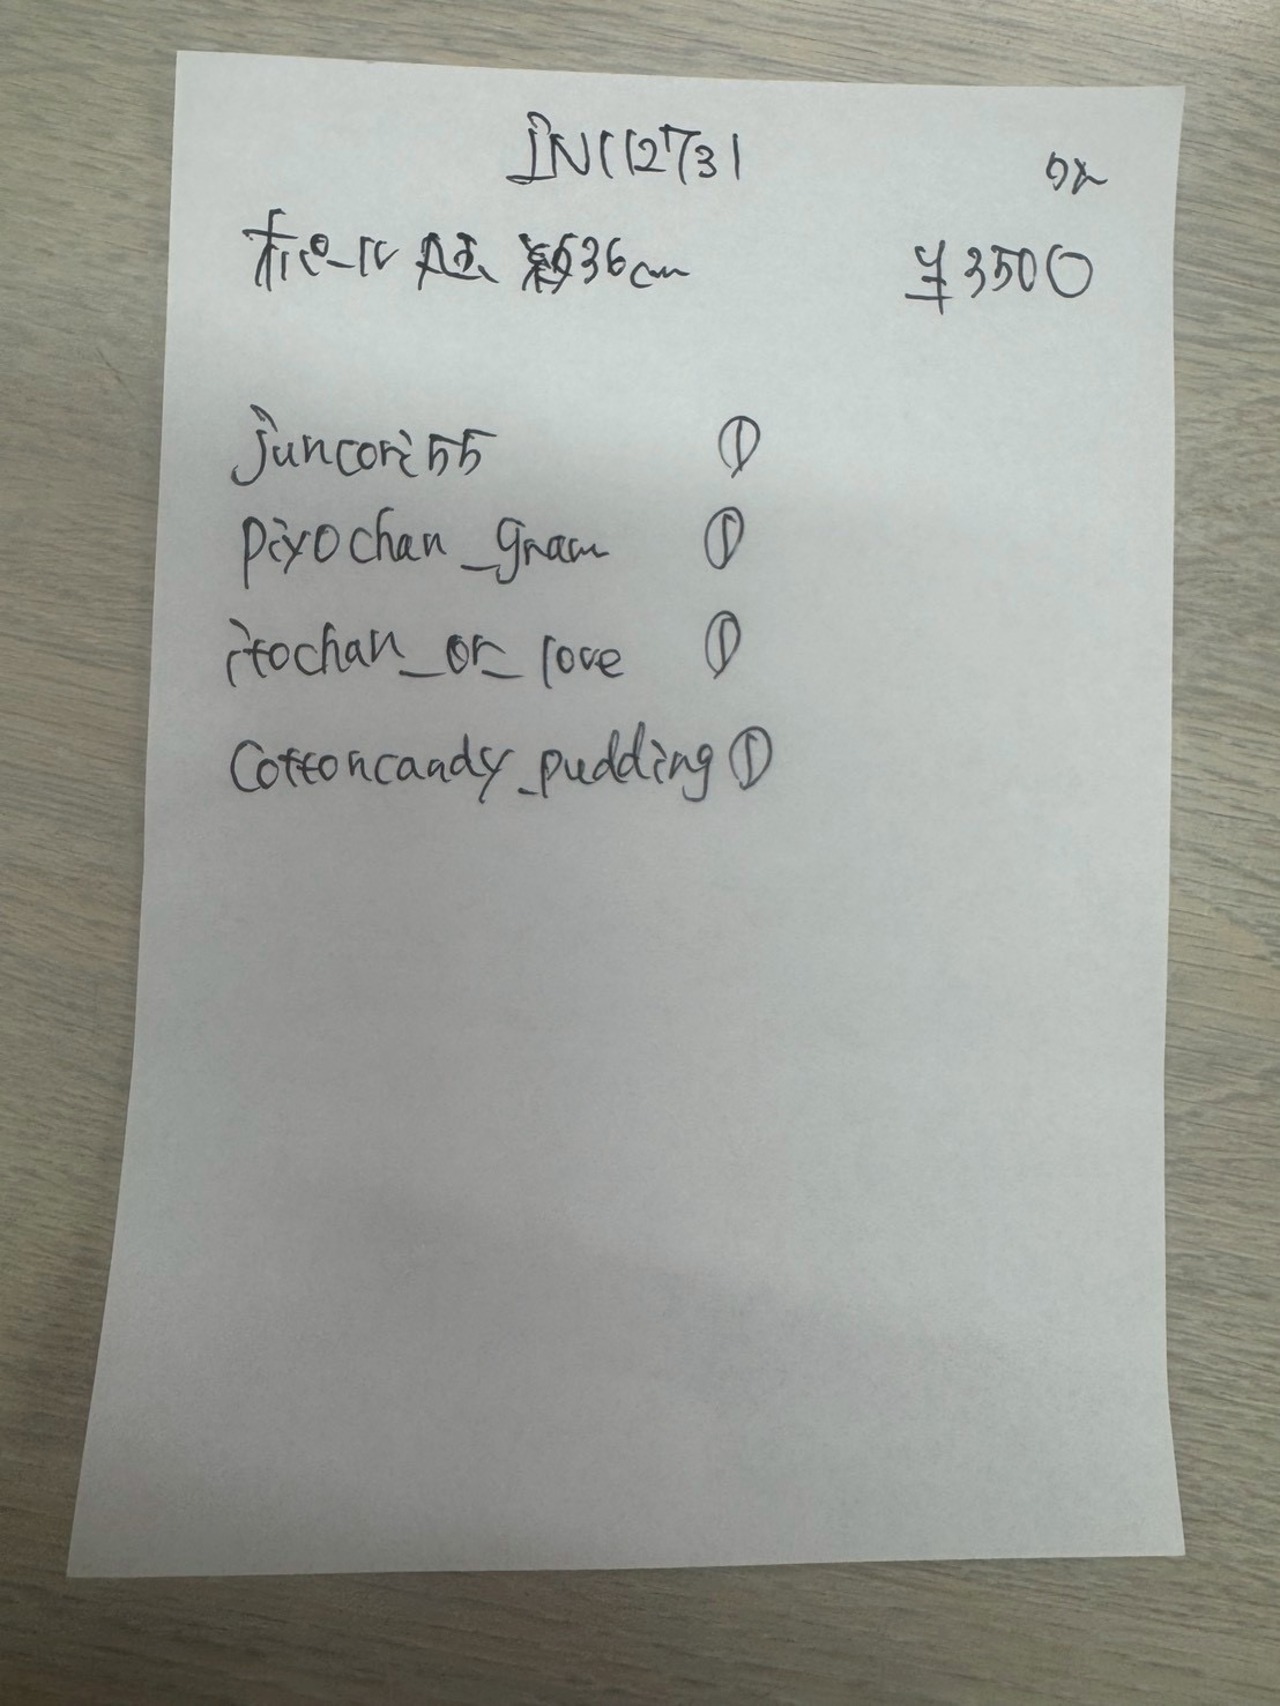 IN112731
約36cm ¥3500
juncori55 ①
piyochan_gram ①
itochan_or_love ①
Cottoncandy_pudding ①